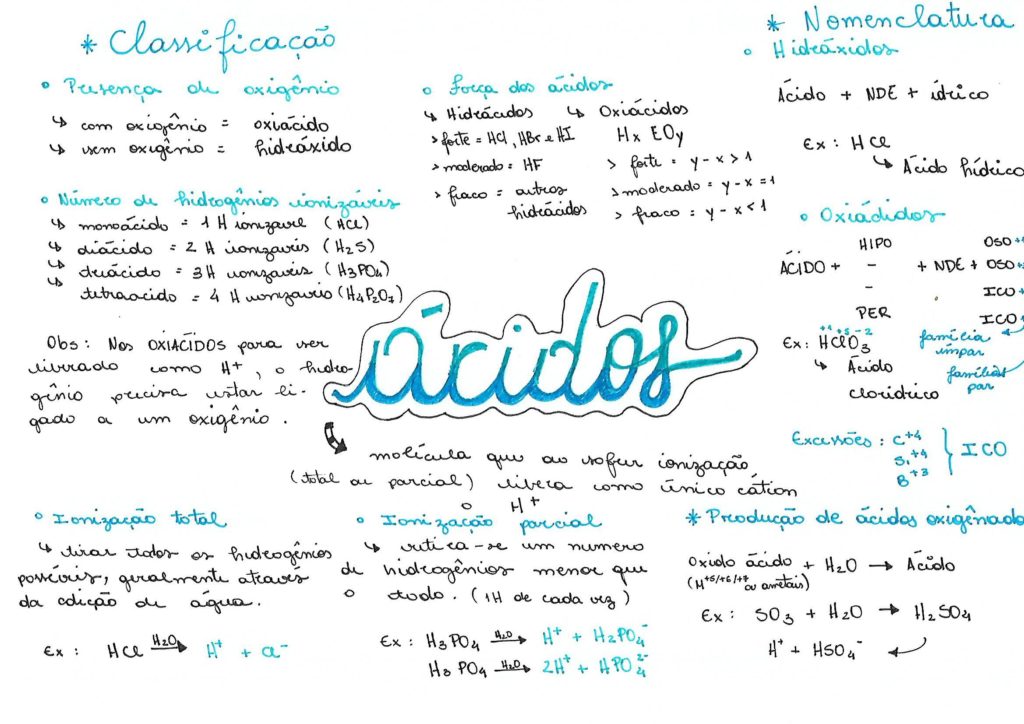 * Classificação
• Presença de oxigênio
↳ com oxiogênio = oxiácido
↳ sem oxigênio = hidráxido
• Número de hidrogênios ionizáveis
↳ monoácido = 1 H ionizavel (HCl)
↳ diácido = 2 H ionizaveis (H₂S)
↳ triácido = 3H ionizaveis (H₃PO₄)
↳ tetraacido = 4 H ionizaveis (H₄P₂O₇)
Obs: Nos OXIACIDOS para ser
livrado como H⁺, o hidro-
gênio precisa estar li-
gado a um oxigênio.
• Força dos ácidos
↳ Hidrácidos ↳ Oxiácidos
> forte = HCl, HBr e HI
> moderado = HF
> fraco = outros
hidrácidos
Hx EOy
> forte = y - x > 1
> moderado = y - x = 1
> fraco = y - x < 1
* Nomenclatura
• Hidráxidos
Ácido + NDE + ídrico
Ex: HCl
↳ Ácido hídrico
• Oxiádidos
HIPO OSO
ÁCIDO + - + NDE + OSO
- ICO
PER ICO
família
impar
famílias
par
+1 +5 -2
Ex: HClO₃
↳ Ácido
cloridrico
Excessões: C⁺⁴
Si⁺⁴
B⁺³
} ICO
Ácidos
molécula que ao sofrer ionização
(total ou parcial) libera como único cátion
o H⁺
• Ionização total
↳ tirar todos os hidrogênios
possíveis, geralmente através
da adição de água.
Ex: HCl H₂O→ H⁺ + Cl⁻
• Ionização parcial
↳ retira-se um numero
de hidrogênios menor que
o todo. (1H de cada vez)
Ex: H₃PO₄ H₂O→ H⁺ + H₂PO₄⁻
H₃PO₄ H₂O→ 2H⁺ + HPO₄²⁻
* Produção de ácidos oxigênado
Oxido ácido + H₂O → Ácido
(H⁺⁵/⁺⁶/⁺⁷ ou ametais)
Ex: SO₃ + H₂O → H₂SO₄
H⁺ + HSO₄⁻